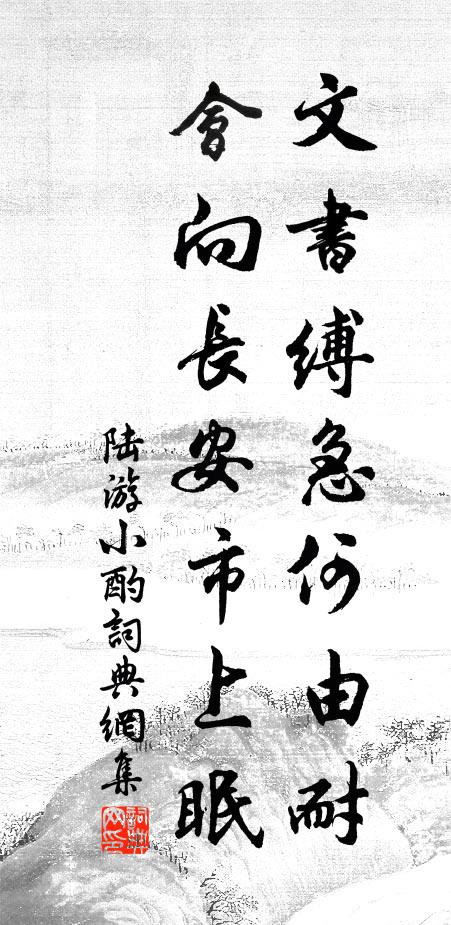 文書縛急何由耐
會向長安市上眠
陸游小酌詞典網集
詞典网印